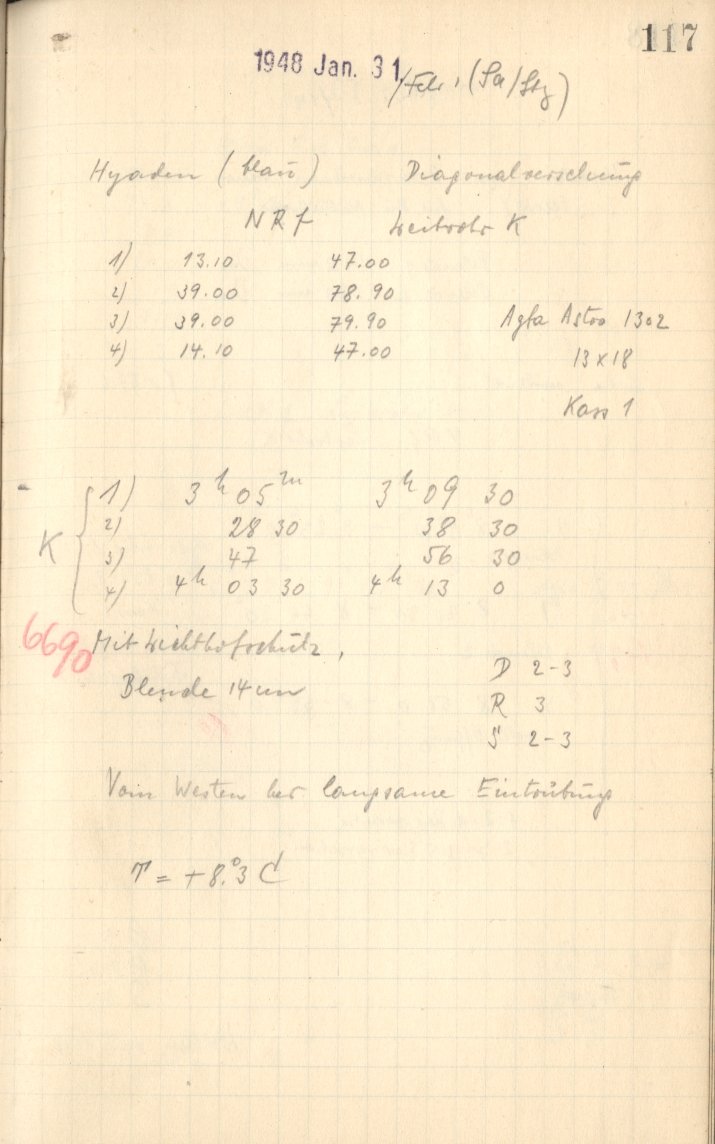 117
1948 Jan. 31
/Febr, (Sa/Stg)
Hyaden (blau) Diagonalverschiebung
NRf Leitrohr K
1) 13.10 47.00
2) 39.00 78.90
3) 39.00 79.90 Agfa Astro 1302
4) 14.10 47.00 13x18
Kass 1
K
1) 3h 05m 3h 09 30
2) 28 30 38 30
3) 47 56 30
4) 4h 03 30 4h 13 0
6690 Mit Lichthofschutz,
D 2-3
Blende 14 cm
R 3
S 2-3
Vom Westen her langsame Eintrübung
T = +8.°3 C